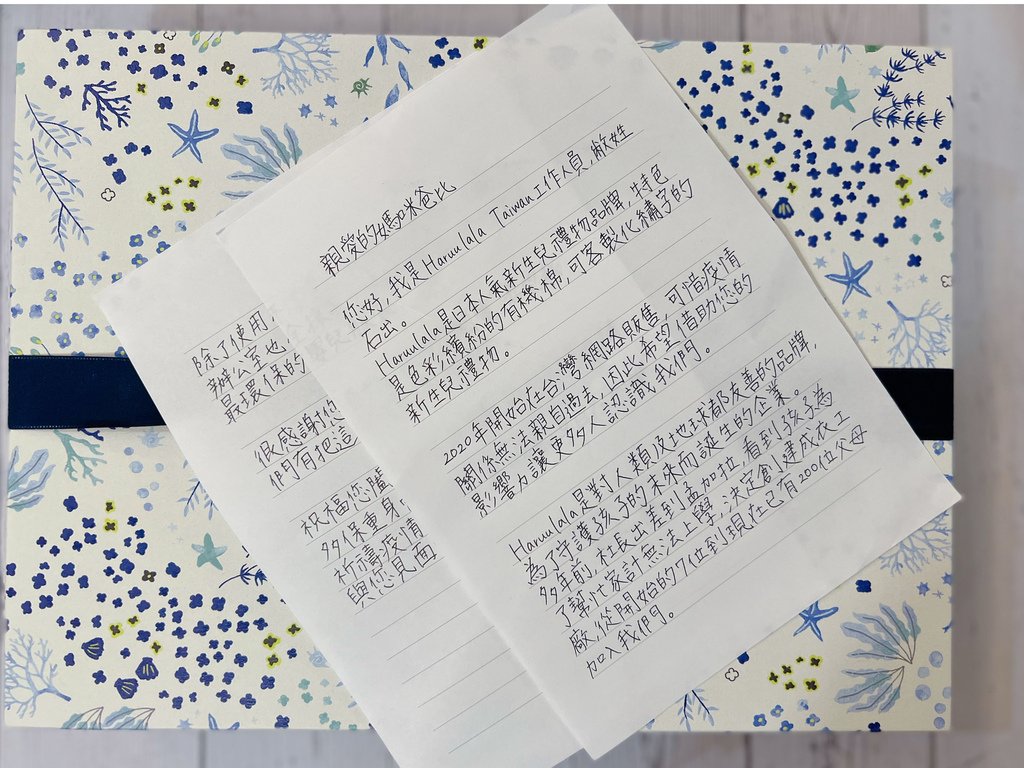 親愛的媽咪爸比
您好,我是Haruulala Taiwan工作人員,敝姓
石出。
Haruulala是日本人氣新生兒禮物品牌,特色
是色彩繽紛的有機棉,可客製化繡字的
新生兒禮物。
2020年開始在台灣網路販售,可惜疫情
關係無法親自過去,因此希望借助您的
影響力讓更多人認識我們。
Haruulala是對人類及地球都友善的品牌,
為了守護孩子的未來而誕生的企業。
多年前,社長出差到孟加拉,看到孩子為
了幫忙家計無法上學,決定創建成衣工
廠,從開始的7位到現在已有200位父母
加入我們。
除了使用
辦公室也
最環保的
很感謝您
們有把這
祝福您隨
多保重身
祈禱疫情
與您見面